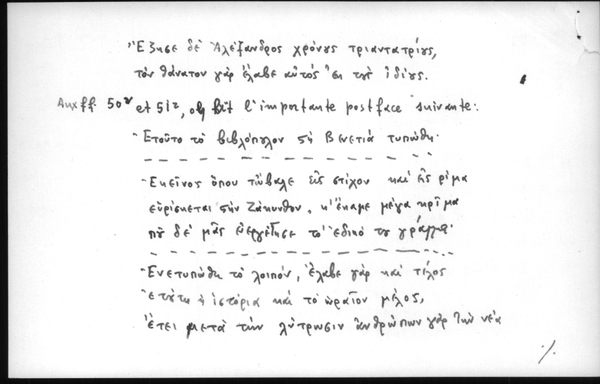 Ἔζησε δὲ Ἀλέξανδρος χρόνους τριαντατρίους,
τὸν θάνατον γὰρ ἔλαβε αὐτὸς ἐκ τοὺς ἰδίους.
Aux ff 50v et 51r, on lit l'importante postface suivante:
Ἐτοῦτο τὸ βιβλόπουλον στὴ Βενετιὰ τυπώθη.
Ἐκεῖνος ὅπου τὤβαλε εἰς στίχον καὶ εἰς ρίμα
εὑρίσκεται στὴν Ζάκυνθον, κ' ἔκαμε μέγα κρῖμα
ποῦ δὲ μᾶς εὐεργέτησε τὸ ἐδικό του γράμμα.
Ἐνετυπώθη τὸ λοιπόν, ἔλαβε γὰρ καὶ τέλος
ἐτούτη ἡ ἱστόρια καὶ τὸ ὡραῖον μέλος,
ἔτει μετὰ τὴν λύτρωσιν ἀνθρώπων γὰρ τὴν νέα
./.